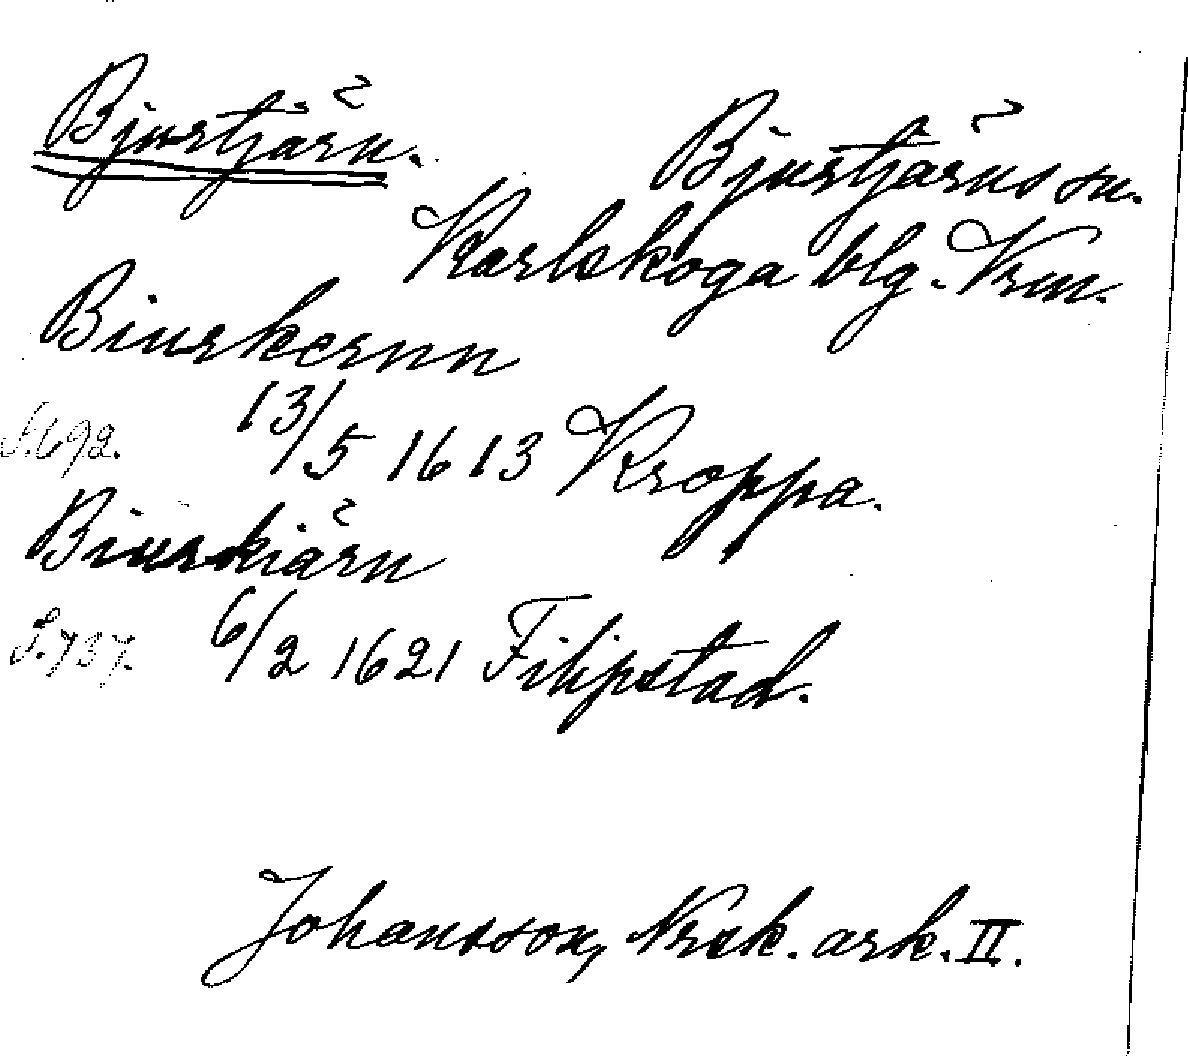 Bjurtjärn.
Bjurtjärns sn.
Karlskoga blg. Vrm.
Biurkernn
S. 692. 13/5 1613 Kroppa.
Biurkiärn
S. 737. 6/2 1621 Filipstad.
Johansson, Norsk. ark. II.